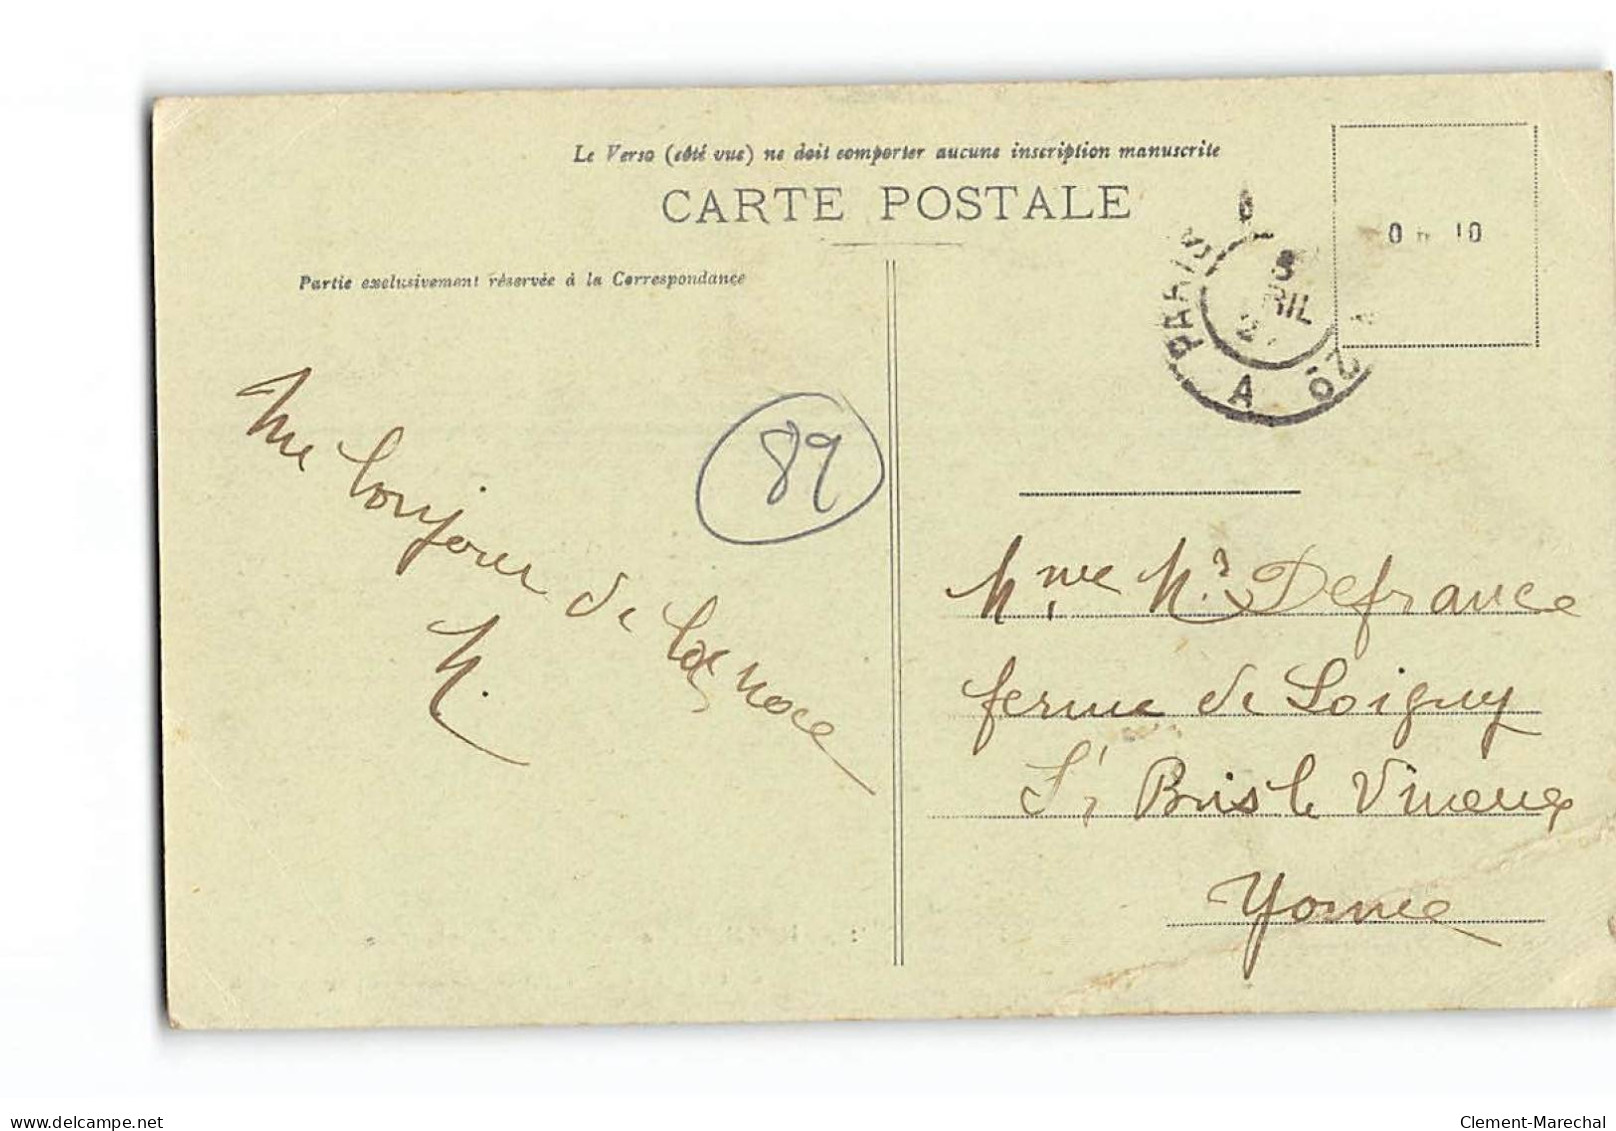 Le Verso (côté vue) ne doit comporter aucune inscription manuscrite
CARTE POSTALE
Partie exclusivement réservée à la Correspondance
PARIS
8
RIL
2
A
0 10
89
Une bonjour de
N.
Mme Defrance
ferme de Loigny
St Bris le Vineux
Yonne
delcampe.net
Clement-Marechal